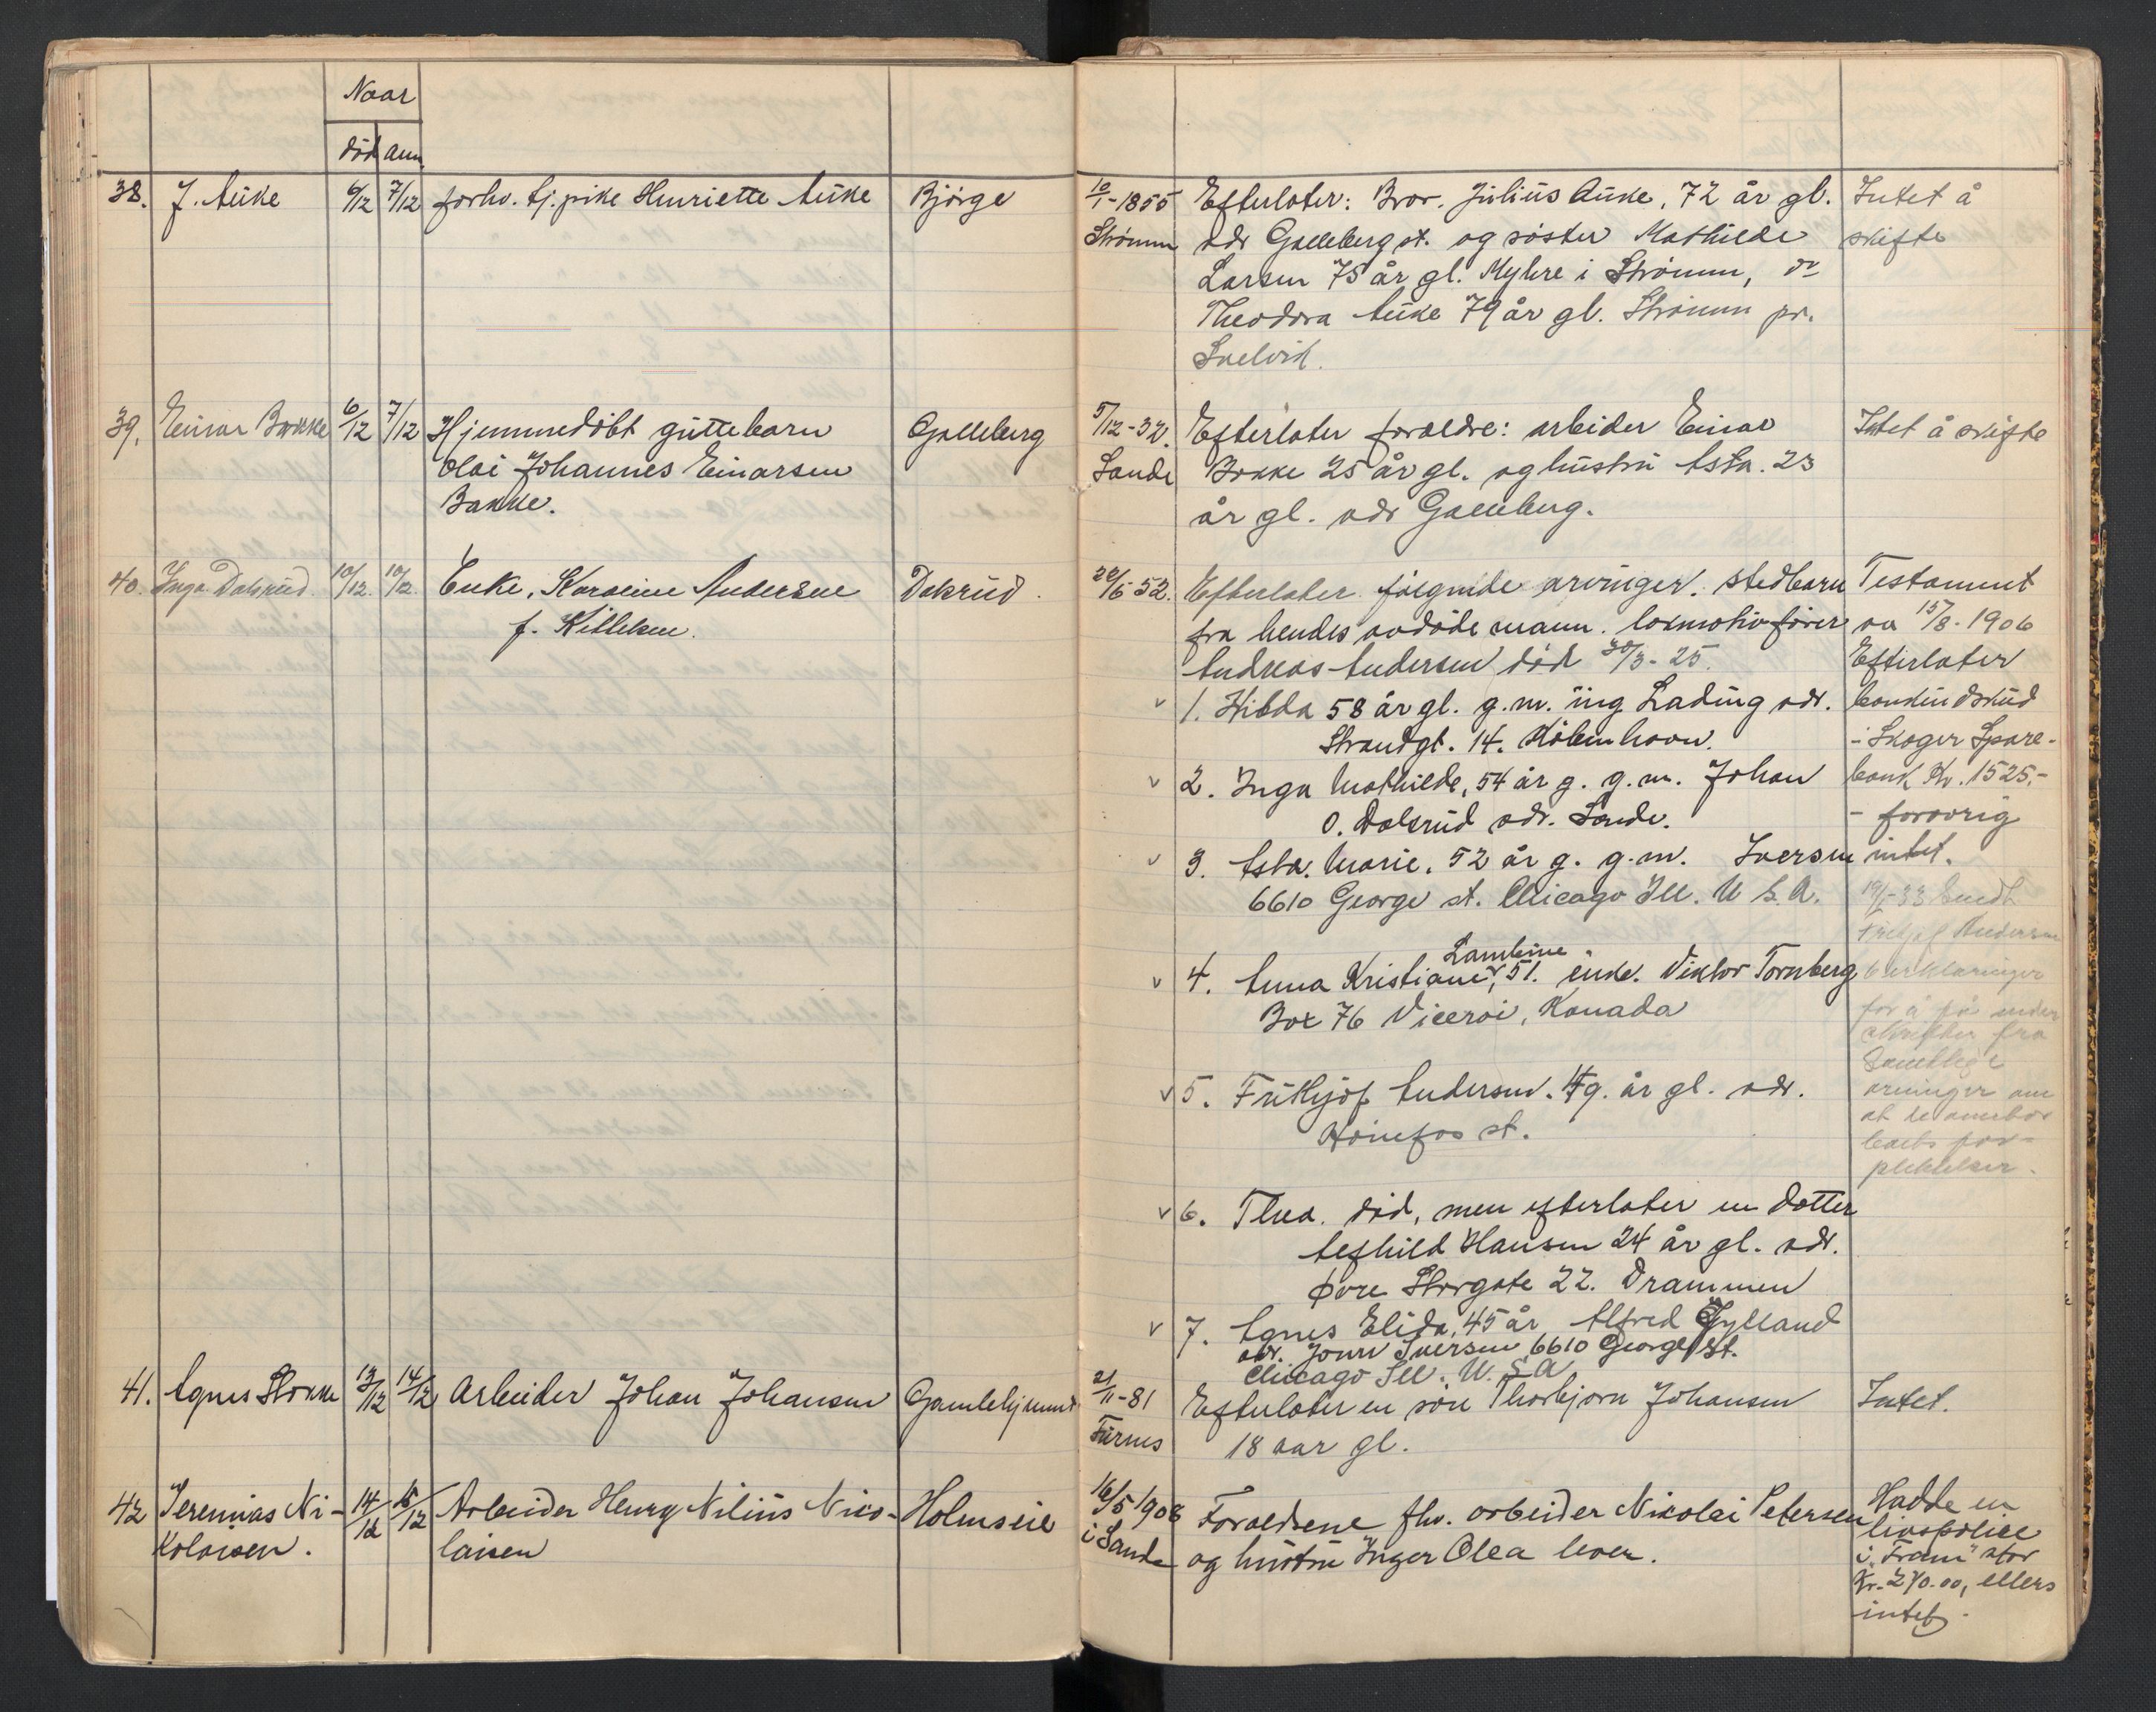 Naar
död anm.
38. J. Auke 6/12 7/12 forhv. tj. pike Henriette Auke Bjørge
10/1-1855 Efterlater: Bror. Julius Auke, 72 år gl. Intet å
Strømm adr Galleberg st. og søster Mathilde skifte
Larsen 75 år gl. Myhre i Strømm, do
Theodora Auke 79 år gl. Strømm pr.
Svelvik.
39. Einar Bakke 6/12 7/12 Hjemmedöbt guttebarn Galleberg
Olai Johannes Einarsen
Bakke.
5/12-32. Efterlater foraeldre: arbeider Einar Intet å skifte
Sande Bakke 25 år gl. og hustru Asta. 23
år gl. adr Galleberg.
40. Inga Dalsrud. 10/12. 10/12. Enke, Karoline Andersen Dalsrud.
f. Killelsen.
22/6-52. Efterlater følgende arvinger. Stedbarn Testament
fra hendes avdöde mann. lokomotivfører av 15/8-1906
Andreas Andersen död 30/3-25. Efterlater
v 1. Hilda 58 år gl. g.m. ing Lading adr. bankindskud
Strandgt. 14. København. i Skoger Spare-
v 2. Inga Mathilde, 54 år g. g.m. Johan bank Kr. 1525.-
O. Dalsrud adr. Sande. - forøvrig
v 3. Asta. Marie. 52 år g. g.m. Iversen intet.
6610 George st. Chicago Ill. U S. A.
19/1-33 sendt
Fritjof Andersen
Lambine
v 4. Anna Kristiane, 51. enke. Viktor Tornberg 6 erklæringer
Box 76 Viceroi, Kanada
for å få under
skrifter fra
samtlige
v 5. Frithjof Andersen. 49. år gl. adr. arvinger om
Hönefos st. at de overtar
boets for-
pliktelser.
v 6. Thea. död, men efterlater en datter
Alfhild Hansen 24 år gl. adr.
Øvre Storgate 22. Drammen
v 7. Agnes Elida, 45 år Alfred Gylland
adr. John Iversen 6610 George st.
Chicago Ill. U. S A
41. Agnes Stokke 13/12 14/12 Arbeider Johan Johansen Gamlehjemmet
21/11-81 Efterlater en sön Thorbjørn Johansen Intet.
Furnes 18 aar gl.
42 Jeremias Ni- 14/12 15/12 Arbeider Henry Nilius Nico- Holmseie
kolaisen. laisen
16/5 1908 Foraeldrene fhv. arbeider Nikolai Petersen Hadde en
i Sande og hustru Inger Olea lever. livspolice
i "Fram" stor
Kr. 270.00, ellers
intet.